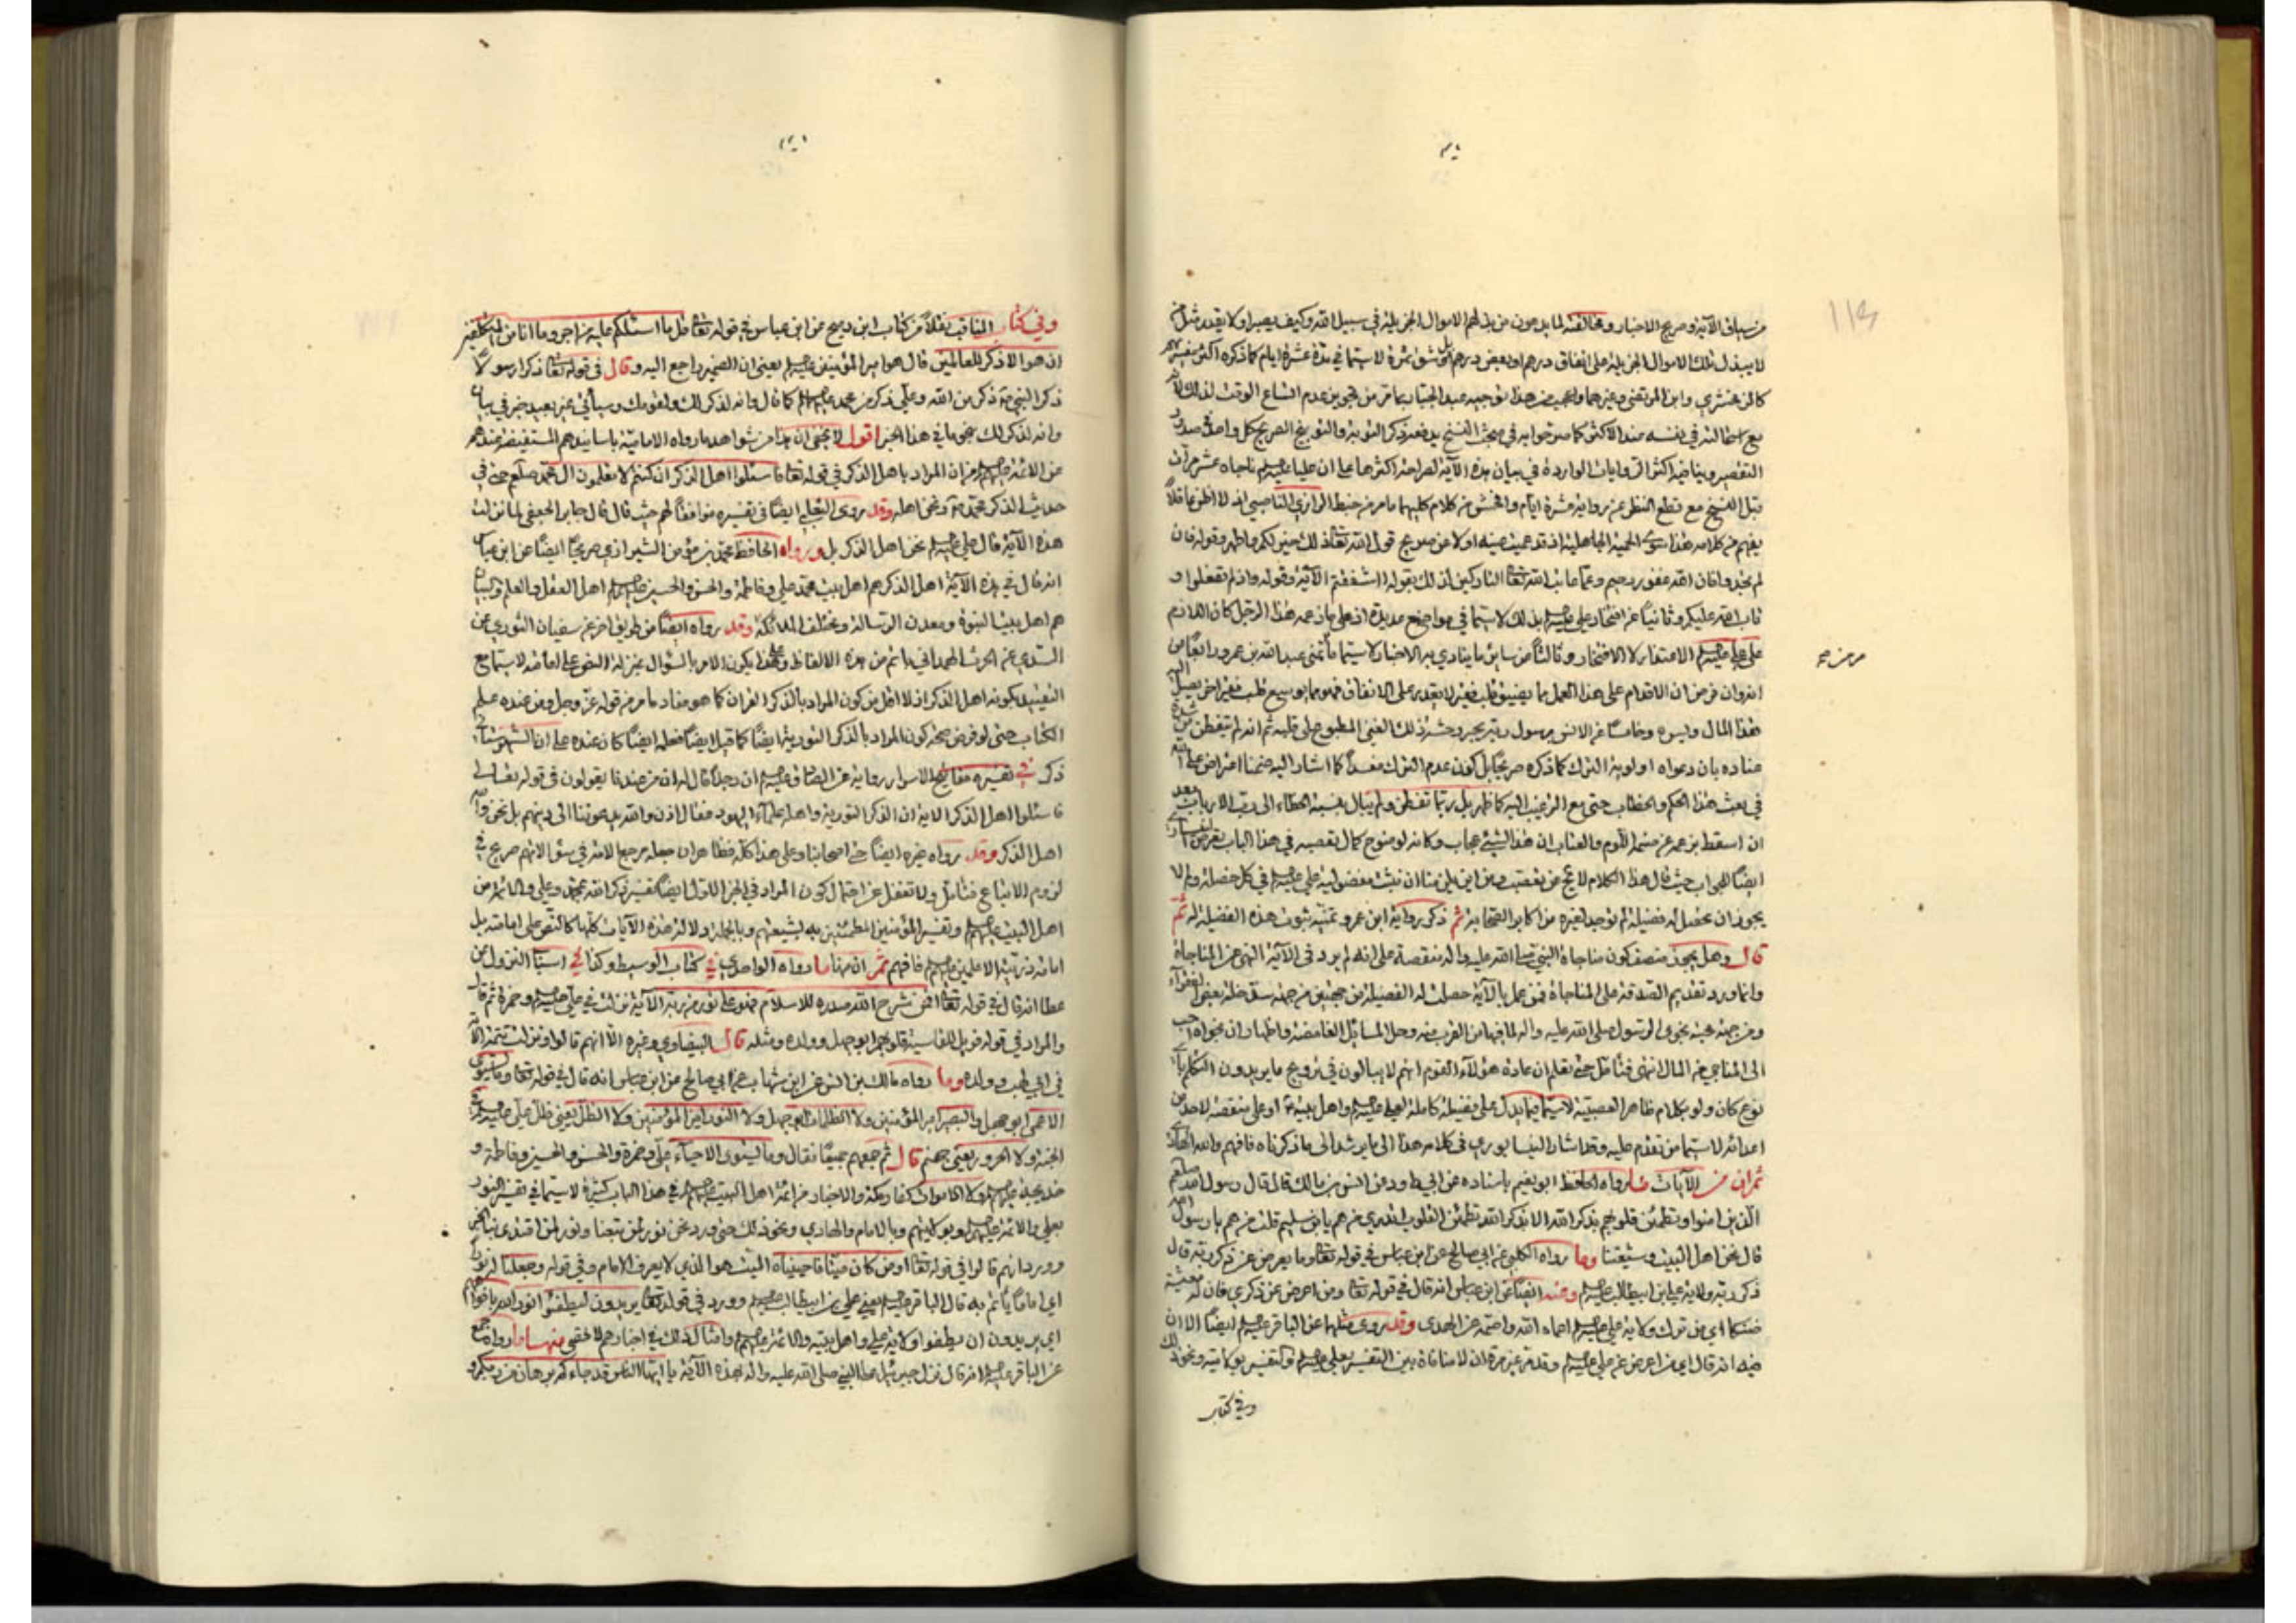 من سياق الآية وصريح الاخبار ومخالفته لما يدعون من بذلهم الاموال الجزيلة في سبيل الله وكيف يصير اولا يقدر مثل من
لا يبذل تلك الاموال الجزيلة على انفاق درهم او بعض درهم بل شق تمرة لا سيما في مدة عشرة ايام كما ذكره اكثر
كالزمخشري وابن المرتضى وغيرهما والعجب من هذا توجيه عبد الجبار بما مر من تجويز عدم اتساع الوقت لذلك
مع استحالته في نفسه عند الاكثر كما صرحوا به في مبحث النسخ يدفعه ذكر التوبة والتوبيخ الصريح كل واحد في صدر
التقصير وينافيه اكثر الروايات الواردة في بيان هذه الآية لصراحة اكثرها على ان عليا عليه السلم ناجاه عشر مرات
قبل النسخ مع قطع النظر عن رواية عشرة ايام وافحش من كلام كليهما ما مر من خبط الرازي الناصبي اذ لا اظن عاقلاً
يفهم من كلامه هذا سوى الحمية الجاهلية اذ قد عميت عينه اولا عن صريح قول الله تعالى ذلك خير لكم واطهر وقوله فان
لم تجدوا فان الله غفور رحيم وعما عاتب الله تعالى التاركين لذلك بقوله ااشفقتم الآية وقوله واذ لم تفعلوا و
تاب الله عليكم وثانياً عن افتخار علي عليه السلم بذلك لا سيما في مواضع عديدة اذ على ما زعمه هذا الرجل كان اللازم
على علي عليه السلم الاعتذار لا الافتخار وثالثاً من سائر ما ينادي به الاخبار لا سيما تمني عبد الله بن عمر ورابعاً من
انه وان فرض ان الاقدام على هذا العمل مما يضيق قلب فقير لا يقدر على الانفاق فهو مما يوسع قلب فقير اخر يصل اليه
هذا المال وليس وخامساً عن الانس برسول ربه بمجرد وحشة ذلك الغني المطبوع على قلبه ثم انه لم يتفطن من شدة
عناده بان دعواه اولوية الترك كما ذكره صريحاً بل كون عدم الترك مفسداً كما اشار اليه ضمنا اعتراض على الله
في بعث هذا الحكم والخطاب حتى مع الترغيب اليه كما ظهر بل ربما تفطن ولم يبال بنسبة الخطاء الى رب الارباب بعد
ان اسقط بزعمه عن منهما اللوم والعتاب ان هذا لشيء عجاب وكانه لوضوح كمال تعصبه في هذا الباب تعرض
ايضاً للجواب حيث قال هذا الكلام لا يخ من تعصب ومن اين يلزمنا ان نثبت مفضولية علي عليه السلم في كل خصلة ولم لا
يجوز ان يحصل له فضيلة لم توجد لغيره من اكابر الصحابة ثم ذكر رواية ابن عمر وتمنيه ثبوت هذه الفضيلة له ثم
قال وهل يجوز منصف كون مناجاة النبي صلى الله عليه واله منقصة على انه لم يرد في الآية النهي عن المناجاة
وانما ورد تقديم الصدقة على المناجاة فمن عمل بالآية حصلت له الفضيلة من جهتين من جهة سد خلة بعض الفقراء
ومن جهة محبة نجوى الرسول صلى الله عليه واله لما فيها من القرب منه وحل المسائل الغامضة واظهار ان نجواه احب
الى المناجي من المال انتهى فتامل حتى تعلم ان عادة هؤلاء القوم انهم لا يبالون في ترويج ما يريدون التكلم باي
نوع كان ولو بكلام ظاهر العصبية لا سيما فيما يدل على فضيلة كاملة لعلي عليه السلم واهل بيته او على منقصة لاحد من
اعدائه لا سيما من تقدم عليه وقد اشار النيسابوري في كلامه هذا الى ما يرشد الى ما ذكرناه فافهم والله الهادي
ثم ان من الآيات ما رواه الحافظ ابو نعيم باسناده عن انس بن مالك قال قال رسول الله صلعم
الذين امنوا وتطمئن قلوبهم بذكر الله الا بذكر الله تطمئن القلوب اتدري من هم يا بن سليم قلت من هم يا رسول الله
قال نحن اهل البيت وشيعتنا وما رواه الكلبي عن ابي صالح عن ابن عباس في قوله تعالى وما يعرض عن ذكر ربه قال
ذكر ربه ولاية علي بن ابيطالب عليه السلم وعنه ايضاً عن ابن عباس انه قال في قوله تعالى ومن اعرض عن ذكري فان له معيشة
ضنكا اي من ترك ولاية علي عليه السلم اعماه الله واصمه عن الهدى وقد روي مثلها عن الباقر عليه السلم ايضاً الا ان
فيه انه قال اي من اعرض عن علي عليه السلم وقد مر غير مرة ان لا منافاة بين التفسير بعلي عليه السلم والتفسير بولايته ونحو ذلك
وفي كتاب
وفي كتاب المناقب نقلاً من كتاب ابن دريج عن ابن عباس في قوله تعالى قل ما اسئلكم عليه من اجر وما انا من المتكلفين
ان هو الا ذكر للعالمين قال هو امير المؤمنين عليه السلم يعني ان الضمير راجع اليه وقال في قوله تعالى ذكرا رسولاً
ذكر النبي ذكر من الله وعلي ذكر من محمد عليهما السلم كما قال وانه لذكر لك ولقومك وسيأتي عن بعيد خبر في بيان
وانه لذكر لك نحو ما في هذا الخبر اقول لا يخفى ان هذا من شواهد ما رواه الامامية باسانيدهم المستفيضة عندهم
عن الائمة عليهم السلم من ان المراد باهل الذكر في قوله تعالى فاسئلوا اهل الذكر ان كنتم لا تعلمون ال محمد صلعم حتى في
حديث الذكر محمد ونحن اهله وقد روى الثعلبي ايضاً في تفسيره موافقاً لهم حيث قال قال جابر الجعفي لما نزلت
هذه الآية قال علي عليه السلم نحن اهل الذكر بل ورواه الحافظ محمد بن مؤمن الشيرازي صريحاً ايضاً عن ابن عباس
انه قال في هذه الآية اهل الذكر هم اهل بيت محمد علي وفاطمة والحسن والحسين عليهم السلم اهل العقل والعلم والبيان
هم اهل بيت النبوة ومعدن الرسالة ومختلف الملائكة وقد رواه ايضاً من طريق اخر عن سفيان الثوري عن
السدي عن الحرث الهمداني باتم من هذه الالفاظ وعلى هذا يكون الامر بالسؤال بمنزلة النص على امامته لا سيما مع
التقييد بكونه اهل الذكر اذ لا اقل من كون المراد بالذكر القران كما هو مفاد ما مر من قوله عز وجل ومن عنده علم
الكتاب حتى لو فرض صحة كون المراد بالذكر التورية ايضاً كما قيل ايضاً فعلمه ايضاً كان عنده على ان الشهرستاني
ذكر في تفسيره مفاتيح الاسرار رواية عن الصادق عليه السلم ان رجلاً قال له ان من عندنا يقولون في قوله تعالى
فاسئلوا اهل الذكر الاية ان الذكر التورية واهله علماء اليهود فقال اذن والله يدعوننا الى دينهم بل نحن والله
اهل الذكر وقد رواه غيره ايضاً حتى اصحابنا وعلى هذا كله فظاهر ان جعله مرجعا للامة في سؤالاتهم صريح في
لزوم الاتباع فتامل ولا تغفل عن احتمال كون المراد في الخبر الاول ايضاً تفسير ذكر الله بمحمد وعلي والائمة من
اهل البيت عليهم السلم وتفسير المؤمنين المطمئنين به بشيعتهم وبالجملة دلالة هذه الآيات كلها كالنص على امامته بل
امامة ذريته الاعلمين عليهم السلم فافهم ثم ان منها ما رواه الواحدي في كتاب الوسيط وكتابه في اسباب النزول عن
عطا انه قال في قوله تعالى افمن شرح الله صدره للاسلام فهو على نور من ربه الآية نزلت في علي عليه السلم وحمزة ثم قال
والمراد في قوله فويل للقاسية قلوبهم ابو جهل وولده ومثله قال البيضاوي وغيره الا انهم قالوا ونزلت تتمة الآية
في ابي لهب وولده وما رواه مالك بن انس عن ابن شهاب عن ابي صالح عن ابن عباس انه قال في قوله تعالى وما يستوي
الاعمى ابو جهل والبصير امير المؤمنين ولا الظلمات ابو جهل ولا النور امير المؤمنين ولا الظل يعني ظل علي عليه السلم في
الجنة ولا الحرور يعني جهنم قال ثم جمعهم جميعاً فقال وما يستوي الاحياء علي وحمزة والحسن والحسين وفاطمة و
خديجة عليهم السلم ولا الاموات كفار مكة والاخبار من ائمة اهل البيت عليهم السلم في هذا الباب كثيرة لا سيما في تفسير النور
بعلي والائمة عليهم السلم وبولايتهم وبالامام والهادي ونحو ذلك حتى ورد نحن نور لمن تبعنا ونور لمن اقتدى بنا
وورد انهم قالوا في قوله تعالى اومن كان ميتا فاحييناه الميت هو الذي لا يعرف الامام وفي قوله وجعلنا له نوراً
اي اماماً يأتم به قال الباقر عليه السلم يعني علي بن ابيطالب عليه السلم وورد في قوله تعالى يريدون ليطفئوا نور الله بافواههم
اي يريدون ان يطفوا ولاية علي واهل بيته والائمة عليهم السلم وامثال ذلك في اخبارهم لا تحصى ومنها ما رواه جمع
عن الباقر عليه السلم انه قال نزل جبرئيل على النبي صلى الله عليه واله بهذه الآية يا ايها الناس قد جاءكم برهان من ربكم و